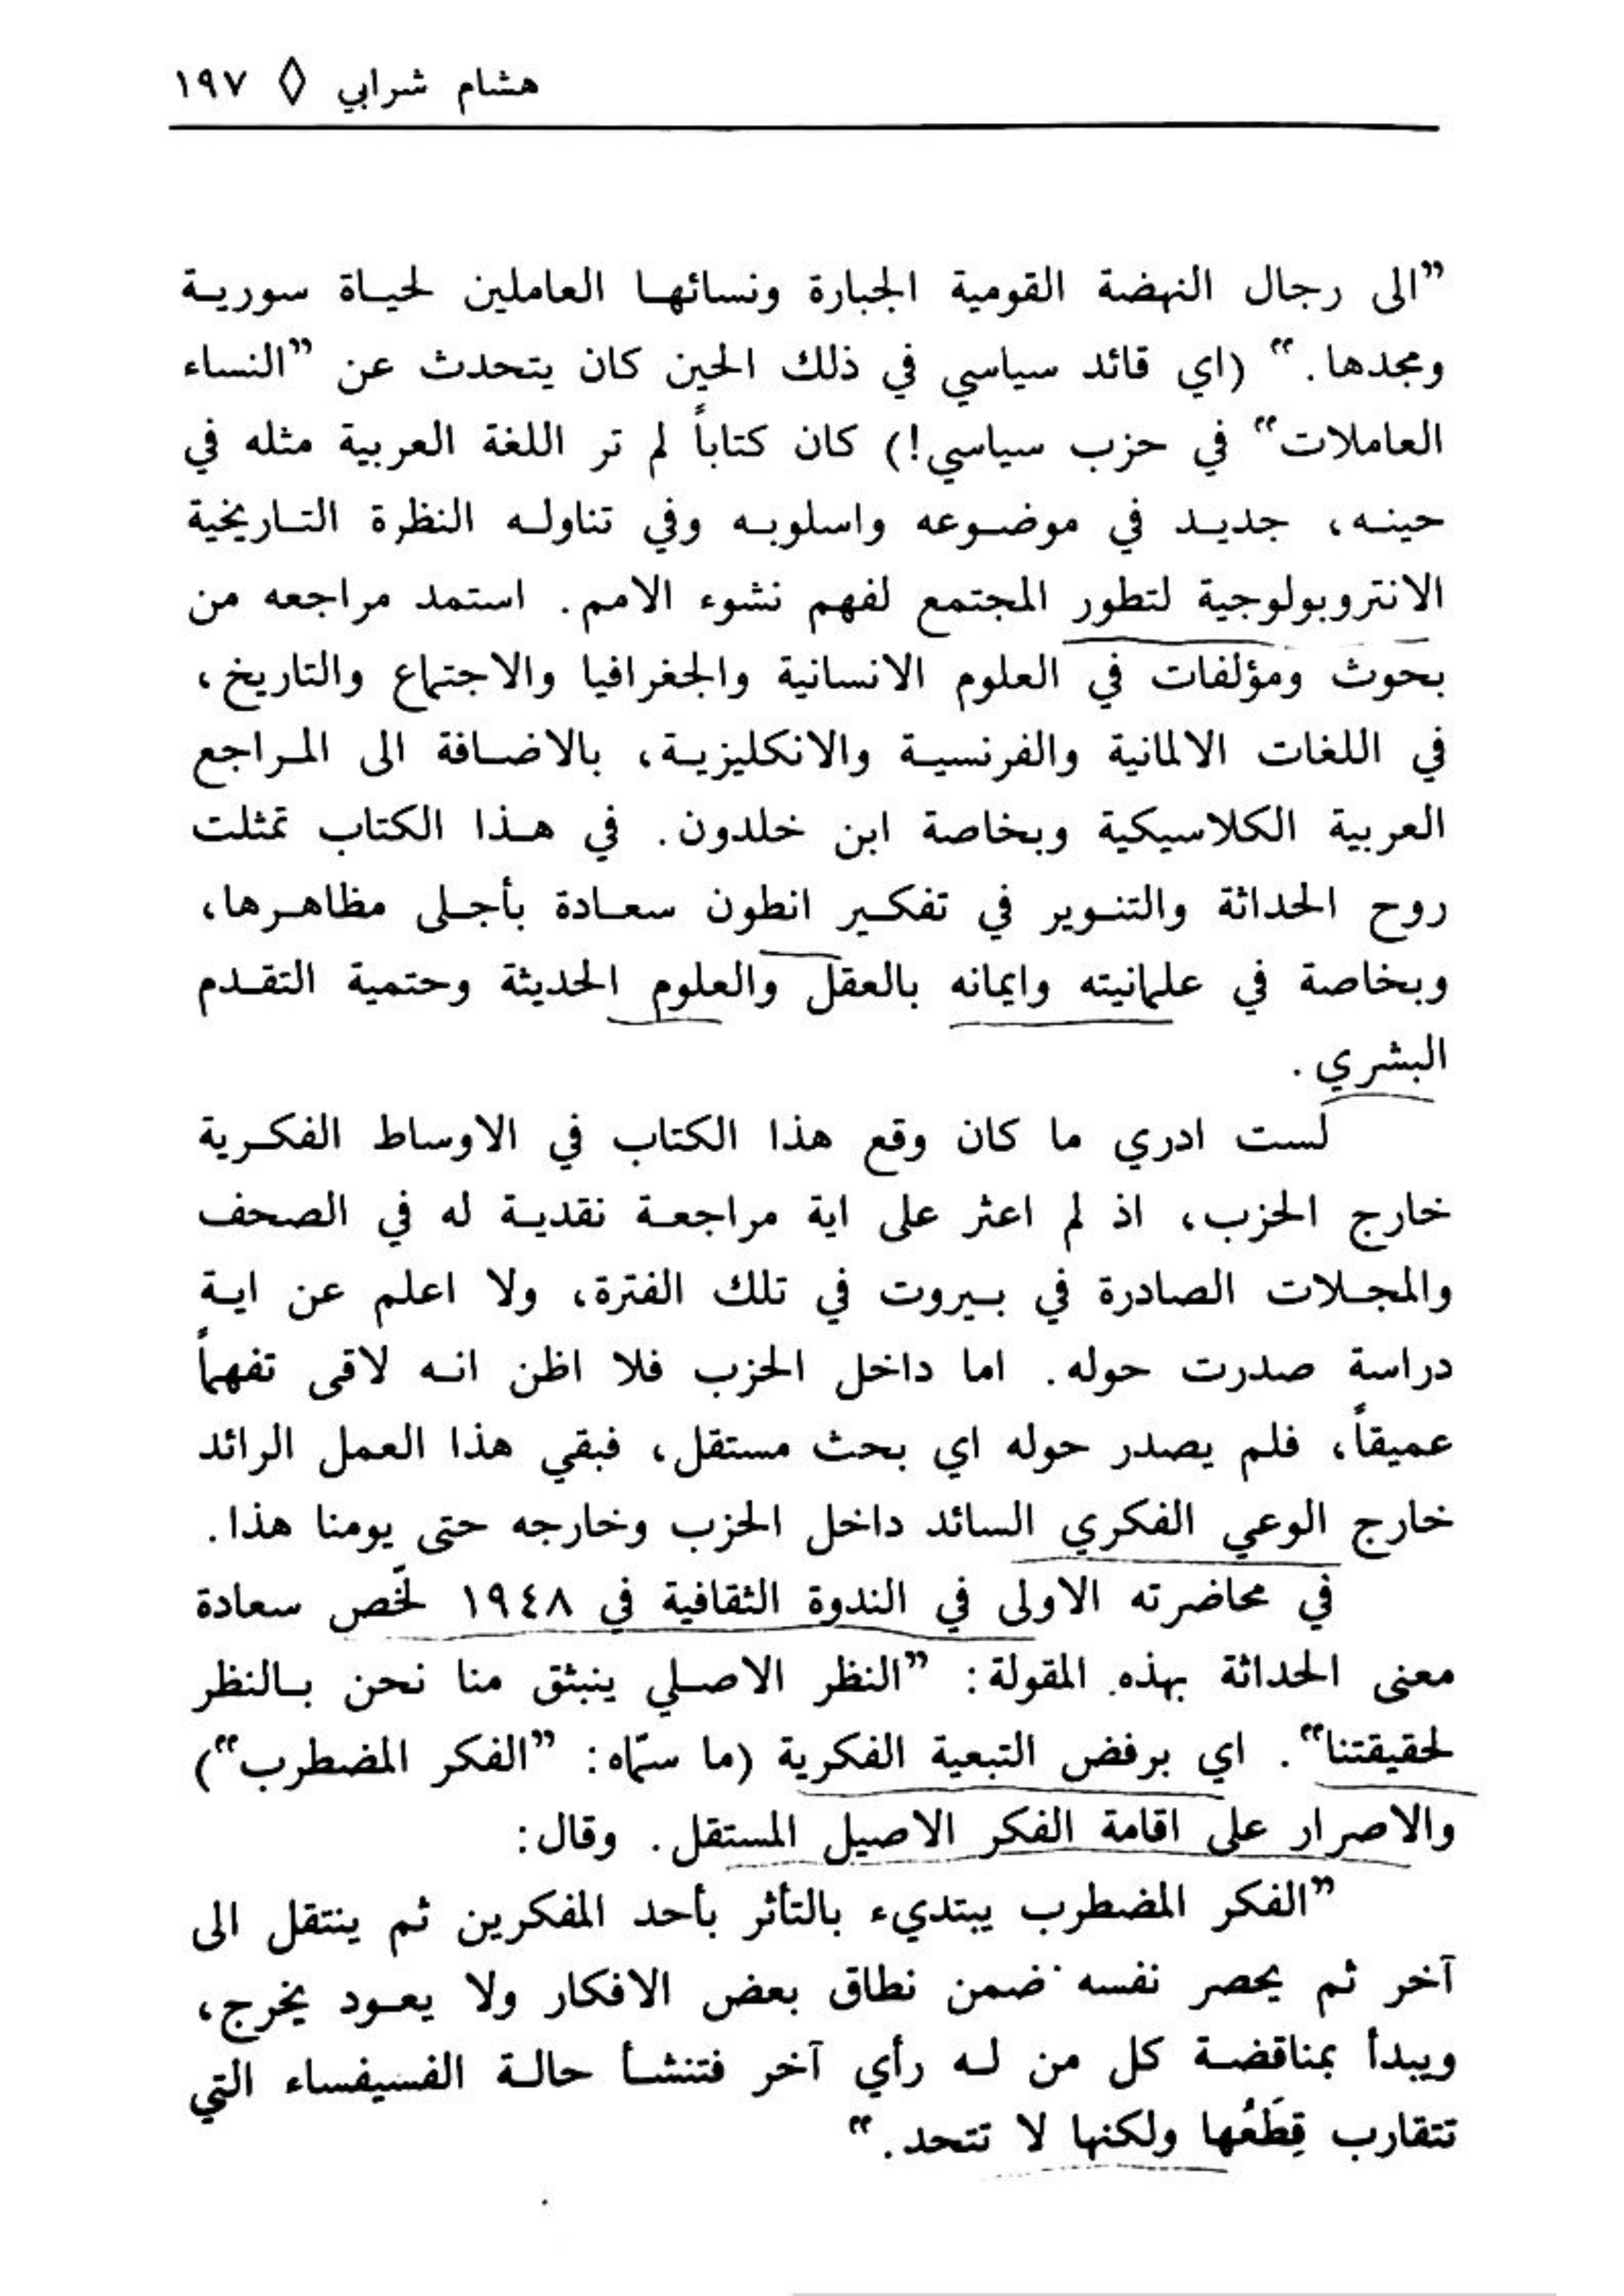 هشام شرابي ◊ ١٩٧
”الى رجال النهضة القومية الجبارة ونسائها العاملين لحياة سورية
ومجدها.“ (اي قائد سياسي في ذلك الحين كان يتحدث عن ”النساء
العاملات“ في حزب سياسي!) كان كتاباً لم تر اللغة العربية مثله في
حينه، جديد في موضوعه واسلوبه وفي تناوله النظرة التاريخية
الانتروبولوجية لتطور المجتمع لفهم نشوء الامم. استمد مراجعه من
بحوث ومؤلفات في العلوم الانسانية والجغرافيا والاجتماع والتاريخ،
في اللغات الالمانية والفرنسية والانكليزية، بالاضافة الى المراجع
العربية الكلاسيكية وبخاصة ابن خلدون. في هذا الكتاب تمثلت
روح الحداثة والتنوير في تفكير انطون سعادة بأجلى مظاهرها،
وبخاصة في علمانيته وايمانه بالعقل والعلوم الحديثة وحتمية التقدم
البشري.
لست ادري ما كان وقع هذا الكتاب في الاوساط الفكرية
خارج الحزب، اذ لم اعثر على اية مراجعة نقدية له في الصحف
والمجلات الصادرة في بيروت في تلك الفترة، ولا اعلم عن اية
دراسة صدرت حوله. اما داخل الحزب فلا اظن انه لاقى تفهماً
عميقاً، فلم يصدر حوله اي بحث مستقل، فبقي هذا العمل الرائد
خارج الوعي الفكري السائد داخل الحزب وخارجه حتى يومنا هذا.
في محاضرته الاولى في الندوة الثقافية في ١٩٤٨ لخّص سعادة
معنى الحداثة بهذه المقولة: ”النظر الاصلي ينبثق منا نحن بالنظر
لحقيقتنا“. اي برفض التبعية الفكرية (ما سمّاه: ”الفكر المضطرب“)
والاصرار على اقامة الفكر الاصيل المستقل. وقال:
”الفكر المضطرب يبتديء بالتأثر بأحد المفكرين ثم ينتقل الى
آخر ثم يحصر نفسه ضمن نطاق بعض الافكار ولا يعود يخرج،
ويبدأ بمناقضة كل من له رأي آخر فتنشأ حالة الفسيفساء التي
تتقارب قِطَعُها ولكنها لا تتحد.“